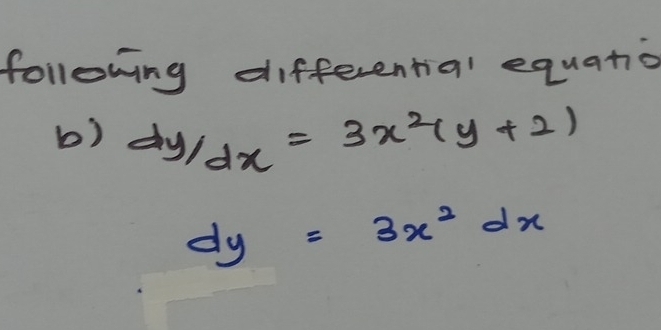 following differential equatio
b) dy/dx = 3x²(y + 2)
dy = 3x² dx